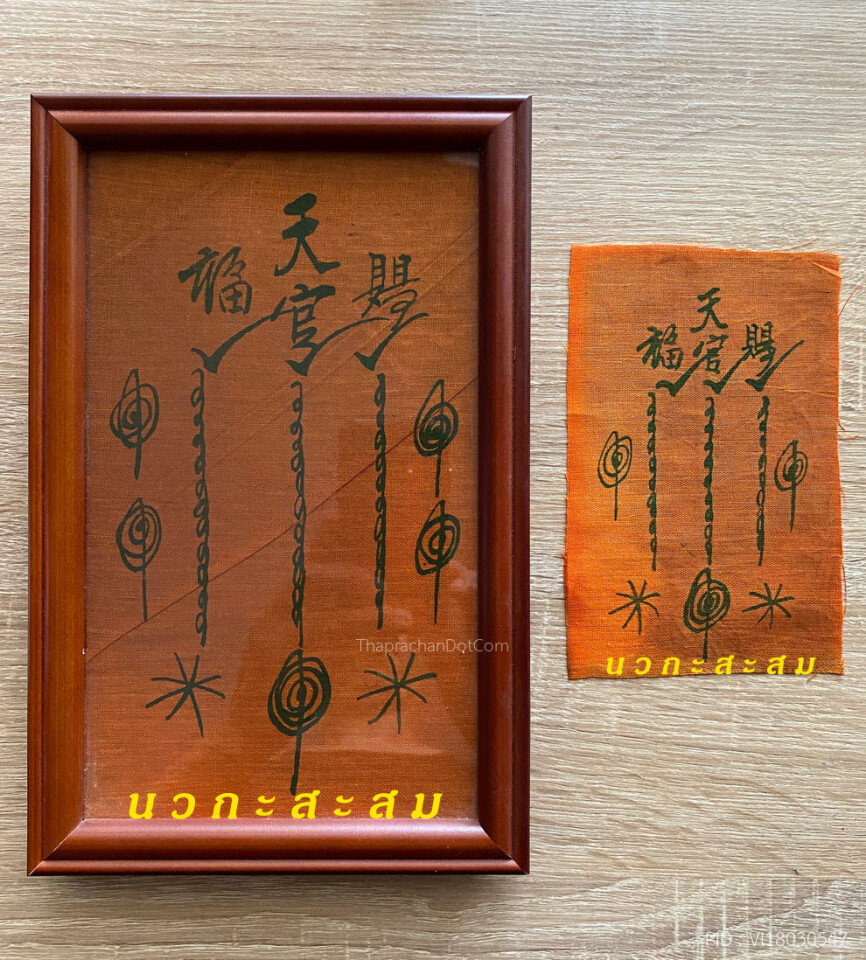 天
福 賜
官
ThaprachanDotCom
นวกะสะสม
天
福 官 賜
นวกะสะสม
VI18030547